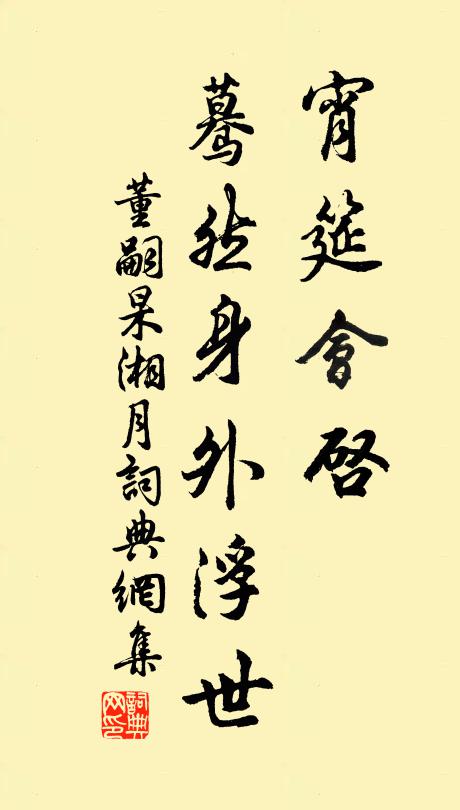 宵筵會啓
驀然身外浮世
董嗣杲湘月詞典網集
詞典
网印